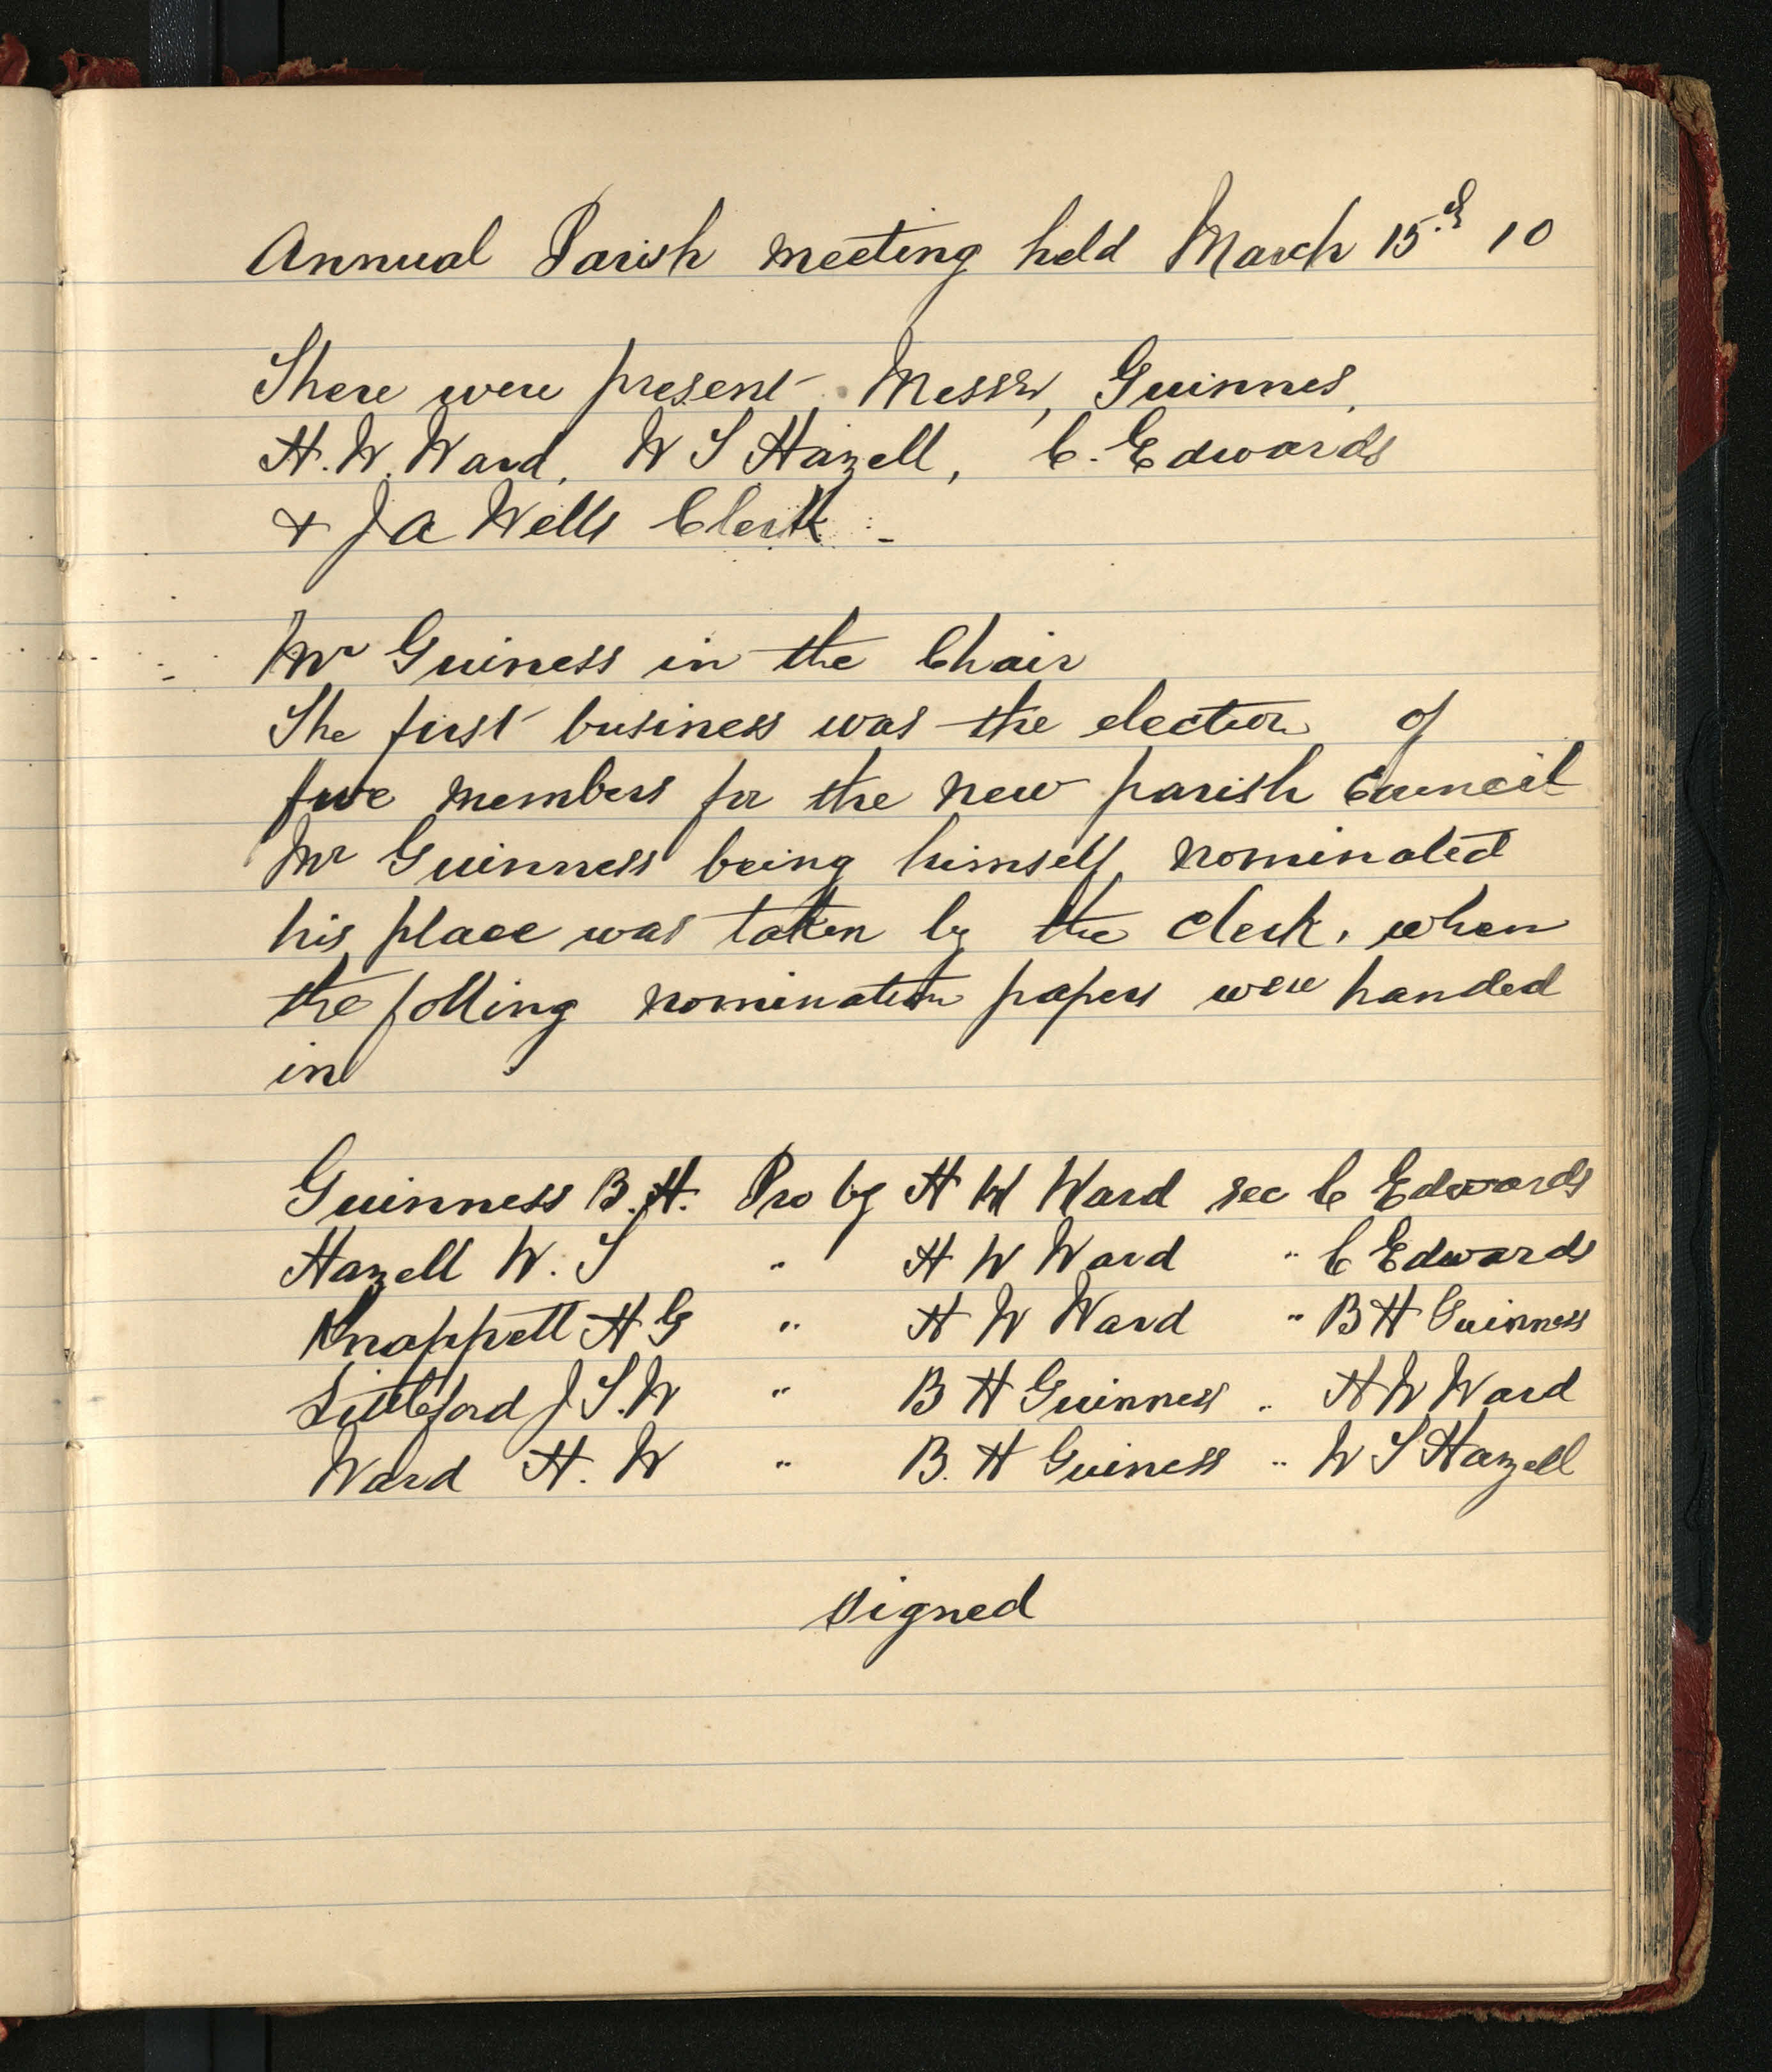 Annual Parish meeting held March 15th 10
There were present Messrs, Guinnes,
H. W. Ward, W S Hazell, C. Edwards
& J A Wells Clerk -
Mr Guiness in the Chair
The first business was the election of
five members for the new parish Council
Mr Guinness being himself nominated
his place was taken by the clerk, when
the folling nomination papers were handed
in
Guinness B. H. Pro by H W Ward sec C Edwards
Hazell W. S " H W Ward " C Edwards
Knappett H G " H W Ward " B H Guinness
Littleford J S. W " B H Guinness " H W Ward
Ward H. W " B. H Guiness " W S Hazell
signed